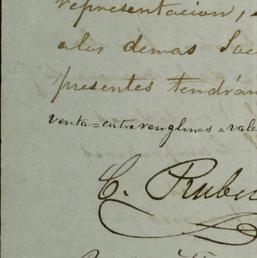 representacion,
a los demas Soc
presentes tendrán
venta=entrerenglones=vale
C. Rube